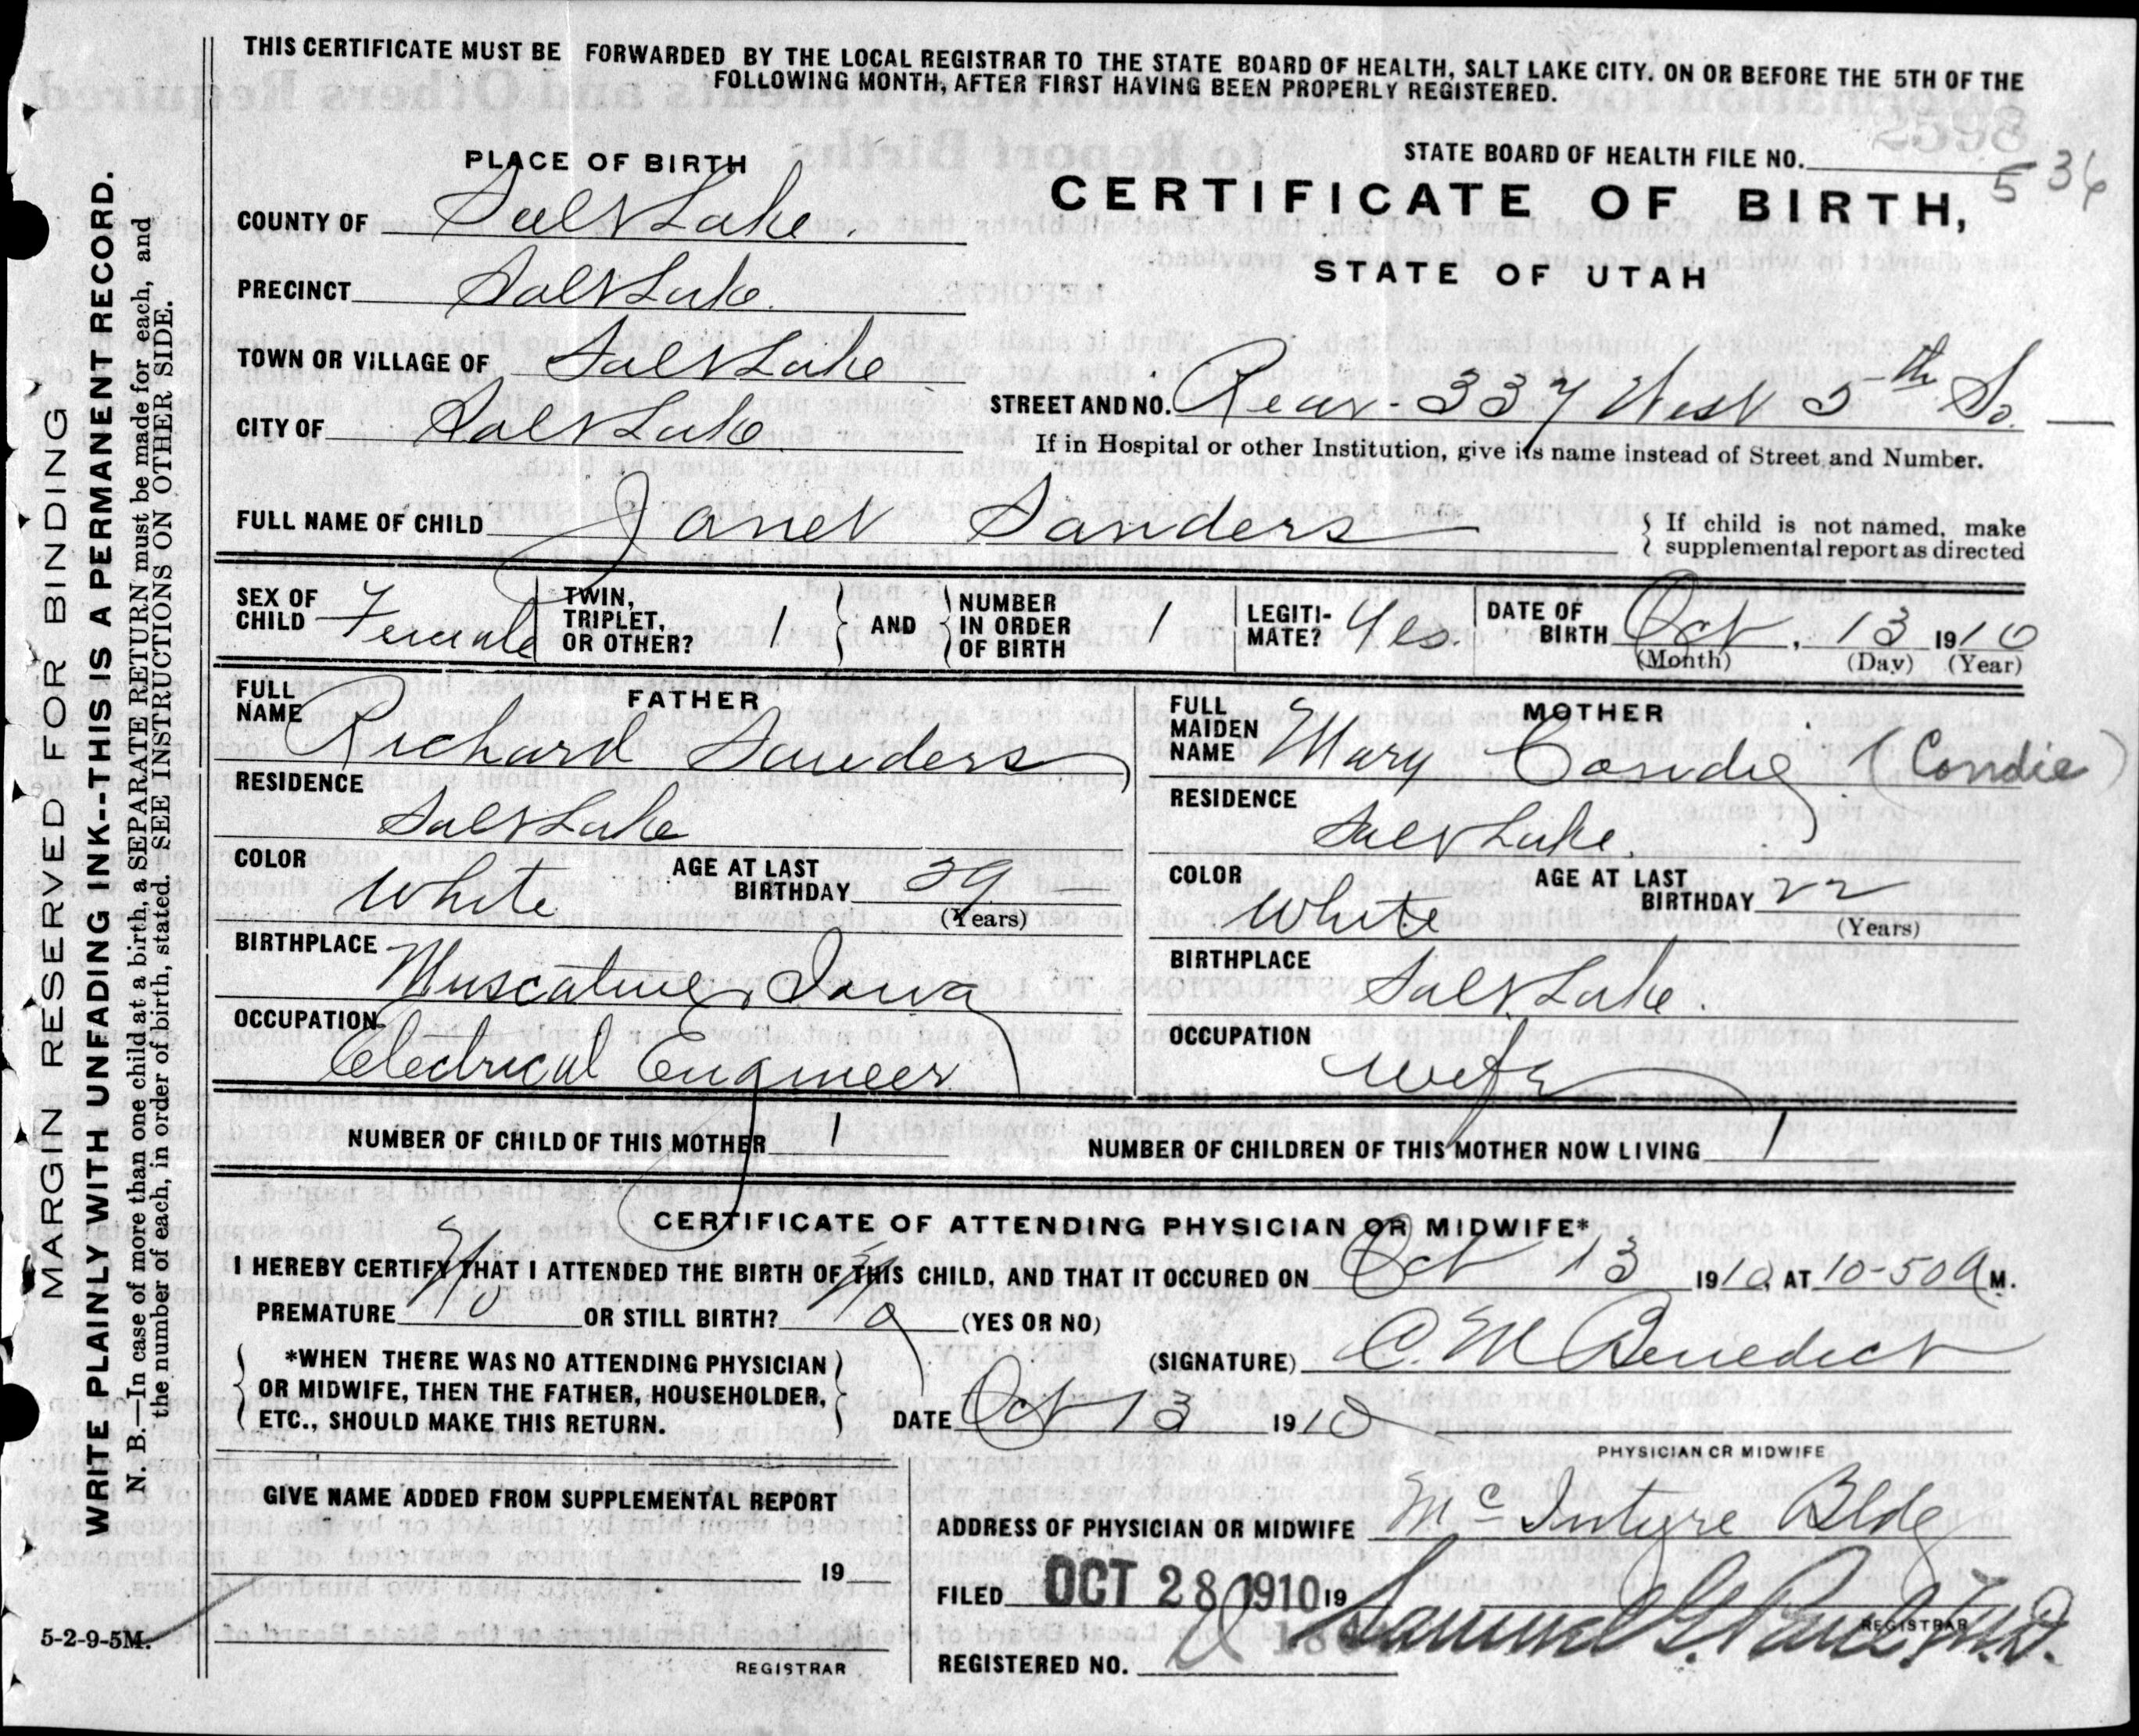 THIS CERTIFICATE MUST BE FORWARDED BY THE LOCAL REGISTRAR TO THE STATE BOARD OF HEALTH, SALT LAKE CITY, ON OR BEFORE THE 5TH OF THE
FOLLOWING MONTH, AFTER FIRST HAVING BEEN PROPERLY REGISTERED.
MARGIN RESERVED FOR BINDING
WRITE PLAINLY WITH UNFADING INK--THIS IS A PERMANENT RECORD.
N. B.—In case of more than one child at a birth, a SEPARATE RETURN must be made for each, and
the number of each, in order of birth, stated. SEE INSTRUCTIONS ON OTHER SIDE.
STATE BOARD OF HEALTH FILE NO. 536
PLACE OF BIRTH
CERTIFICATE OF BIRTH,
STATE OF UTAH
COUNTY OF Salt Lake.
PRECINCT Salt Lake.
TOWN OR VILLAGE OF Salt Lake
CITY OF Salt Lake
STREET AND NO. Rear - 337 West 5th So.
If in Hospital or other Institution, give its name instead of Street and Number.
FULL NAME OF CHILD Janet Sanders
If child is not named, make
supplemental report as directed
SEX OF CHILD Female
TWIN, TRIPLET, OR OTHER? 1
AND NUMBER IN ORDER OF BIRTH 1
LEGITI-MATE? Yes.
DATE OF BIRTH Oct, 13 1910
(Month) (Day) (Year)
FATHER
FULL NAME Richard Sanders
RESIDENCE
Salt Lake
COLOR White
AGE AT LAST BIRTHDAY 29
(Years)
BIRTHPLACE Muscatine, Iowa
OCCUPATION
Electrical Engineer
MOTHER
FULL MAIDEN NAME Mary Condie (Condie)
RESIDENCE
Salt Lake.
COLOR White
AGE AT LAST BIRTHDAY 22
(Years)
BIRTHPLACE Salt Lake.
OCCUPATION
Wife
NUMBER OF CHILD OF THIS MOTHER 1
NUMBER OF CHILDREN OF THIS MOTHER NOW LIVING 1
CERTIFICATE OF ATTENDING PHYSICIAN OR MIDWIFE*
I HEREBY CERTIFY THAT I ATTENDED THE BIRTH OF THIS CHILD, AND THAT IT OCCURED ON Oct 13 1910, AT 10-50 A M.
PREMATURE No OR STILL BIRTH? No (YES OR NO)
*WHEN THERE WAS NO ATTENDING PHYSICIAN
OR MIDWIFE, THEN THE FATHER, HOUSEHOLDER,
ETC., SHOULD MAKE THIS RETURN.
(SIGNATURE) C. M Benedict
DATE Oct 13 1910
PHYSICIAN OR MIDWIFE
GIVE NAME ADDED FROM SUPPLEMENTAL REPORT
19
REGISTRAR
5-2-9-5M.
ADDRESS OF PHYSICIAN OR MIDWIFE McIntyre Bldg
FILED OCT 28 1910 19
Samuel G. Paul M.D.
REGISTRAR
REGISTERED NO.